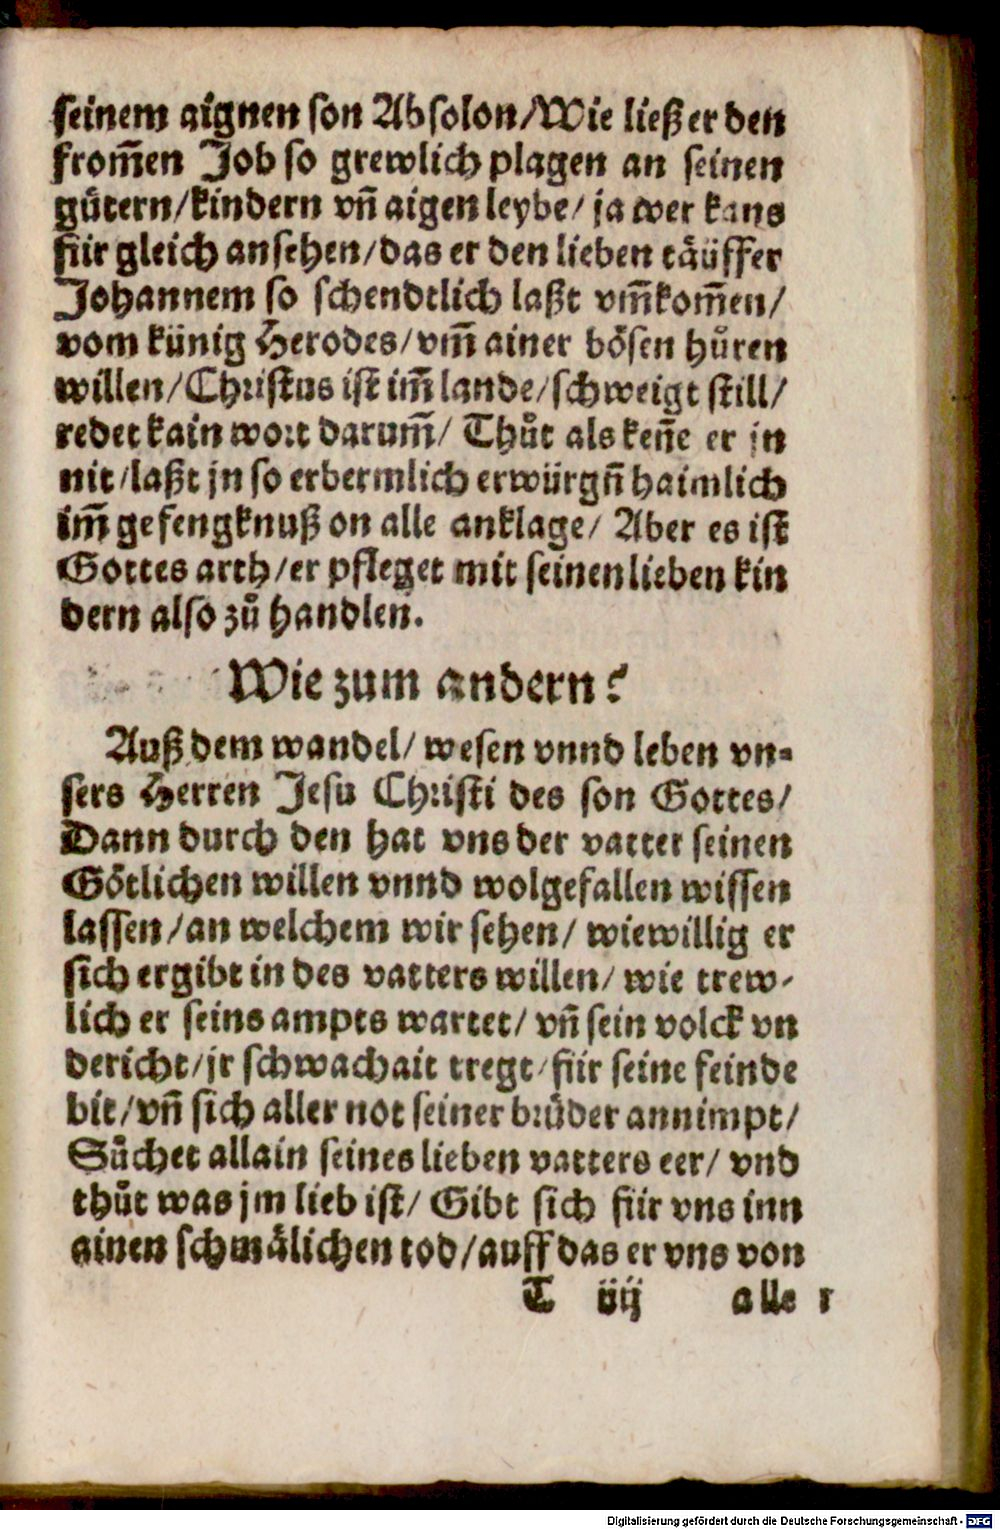 seinem aignen son Absolon/Wie ließ er den
from̃en Job so grewlich plagen an seinen
guͤtern/kindern vñ aigen leybe/ ja wer kans
für gleich ansehen/das er den lieben taͤüffer
Johannem so schendtlich laßt vm̃kom̃en/
vom künig Herodes/vm̃ ainer boͤsen huͦren
willen/Christus ist im̃ lande/schweigt still/
redet kain wort darum̃/ Thuͦt als keñe er jn
nit/laßt jn so erbermlich erwürgñ haimlich
im̃ gefengknuß on alle anklage/ Aber es ist
Gottes arth/er pfleget mit seinen lieben kin
dern also zuͦ handlen.
Wie zum andern?
Auß dem wandel/ wesen vnnd leben vn⸗
sers Herren Jesu Christi des son Gottes/
Dann durch den hat vns der vatter seinen
Goͤtlichen willen vnnd wolgefallen wissen
lassen/an welchem wir sehen/ wiewillig er
sich ergibt in des vatters willen/ wie trew⸗
lich er seins ampts wartet/ vñ sein volck vn
dericht/jr schwachait tregt/für seine feinde
bit/vñ sich aller not seiner bruͤder annimpt/
Suͦchet allain seines lieben vatters eer/ vnd
thuͦt was jm lieb ist/ Gibt sich für vns inn
ainen schmaͤlichen tod/auff das er vns von
T iiij aller
Digitalisierung gefördert durch die Deutsche Forschungsgemeinschaft - DFG